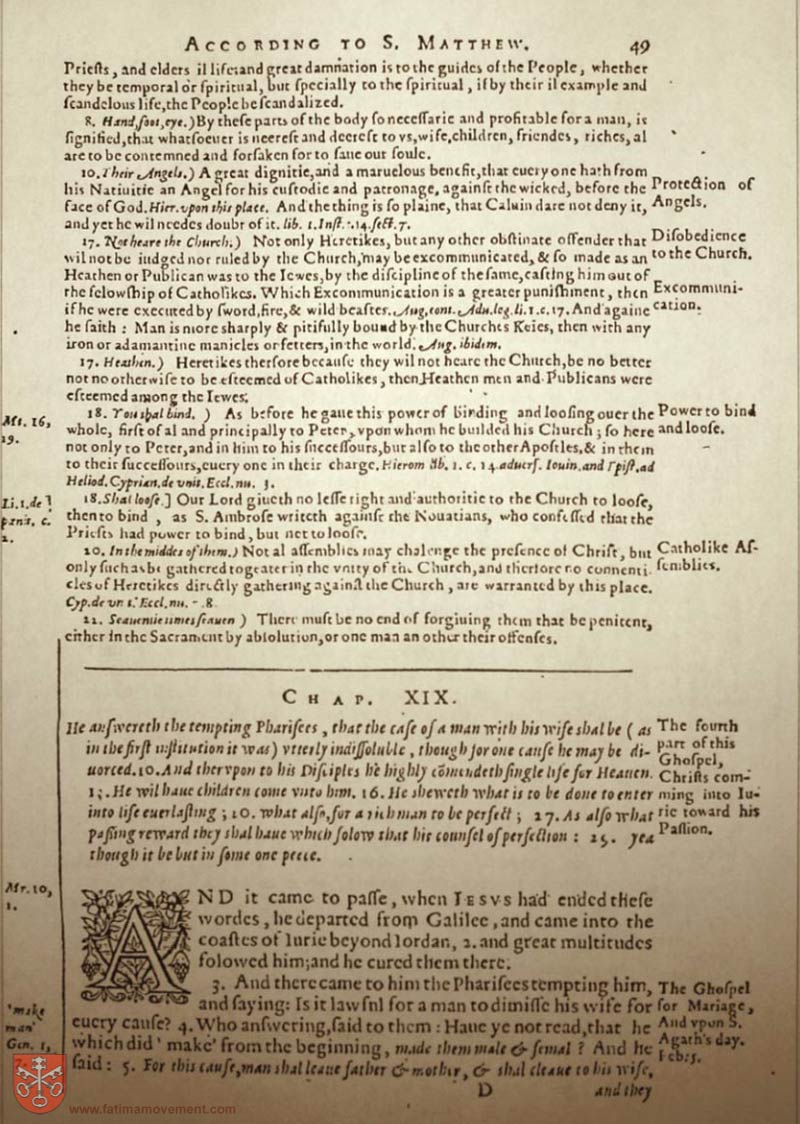 ACCORDING TO S. MATTHEW. 49
Prieſts, and elders il life: and great damnation is to the guides of the People, whether
they be temporal or ſpiritual, but ſpecially to the ſpiritual, if by their il example and
ſcandelous life, the People be ſcandalized.
8. Hand, foot, eye.) By theſe parts of the body ſo neceſſarie and profitable for a man, is
ſignified, that whatſoeuer is neereſt and deereſt to vs, wife, children, friendes, riches, al
are to be contemned and forſaken for to ſaue our ſoule.
10. Their Angels.) A great dignitie, and a maruelous benefit, that euery one hath from
his Natiuitie an Angel for his cuſtodie and patronage, againſt the wicked, before the
face of God. Hier. vpon this place. And the thing is ſo plaine, that Caluin dare not deny it,
and yet he wil needes doubt of it. lib. 1. Inſt. 14. ſect. 7.
Protection of
Angels.
17. Not heare the Church.) Not only Heretikes, but any other obſtinate offender that
wil not be iudged nor ruled by the Church, may be excommunicated, & ſo made as an
Heathen or Publican was to the Iewes, by the diſcipline of the ſame, caſting him out of
the felowſhip of Catholikes. Which Excommunication is a greater puniſhment, then
if he were executed by ſword, fire, & wild beaſtes. Aug. cont. Adu. leg. li. 1. c. 17. And againe
he ſaith: Man is more ſharply & pitifully bound by the Churches Keies, then with any
iron or adamantine manicles or fetters, in the world. Aug. ibidem.
Diſobedience
to the Church.
Excommuni-
cation.
17. Heathen.) Heretikes therfore becauſe they wil not heare the Church, be no better
not no otherwiſe to be eſteemed of Catholikes, then Heathen men and Publicans were
eſteemed among the Iewes.
Mt. 16,
19.
18. You ſhal bind.) As before he gaue this power of binding and looſing ouer the
whole, firſt of al and principally to Peter, vpon whom he builded his Church; ſo here
not only to Peter, and in him to his ſucceſſours, but alſo to the other Apoſtles, & in them
to their ſucceſſours, euery one in their charge. Hierom lib. 1. c. 14. aduerſ. Iouin. and Epiſt. ad
Heliod. Cyprian. de vnit. Eccl. nu. 3.
Power to bind
and looſe.
Li. 1. de
pænit. c.
2.
18. Shal looſe.] Our Lord giueth no leſſe right and authoritie to the Church to looſe,
then to bind, as S. Ambroſe writeth againſt the Nouatians, who confeſſed that the
Prieſts had power to bind, but not to looſe.
20. In the middes of them.) Not al aſſemblies may chalenge the preſence of Chriſt, but
only ſuch as be gathered together in the vnity of the Church, and therfore no conuenti-
cles of Heretikes directly gathering againſt the Church, are warranted by this place.
Cyp. de vnit. Eccl. nu. 8.
Catholike Aſ-
ſemblies.
22. Seauentie times ſeauen) There muſt be no end of forgiuing them that be penitent,
either in the Sacrament by abſolution, or one man an other their offenſes.
CHAP. XIX.
He anſwereth the tempting Phariſees, that the caſe of a man with his wife ſhal be (as
in the firſt inſtitution it was) vtterly indiſſoluble, though for one cauſe he may be di-
uorced. 10. And thervpon to his Diſciples he highly comendeth ſingle life for Heauen.
13. He wil haue children come vnto him. 16. He sheweth what is to be done to enter
into life euerlaſting; 20. what alſo, for a rich man to be perfect; 27. As alſo what
paſſing reward they shal haue which folow that his counſel of perfection: 29. yea
though it be but in ſome one peece.
The fourth
part of this
Ghoſpel,
Chriſts com-
ming into Iu-
rie toward his
Paſſion.
Mr. 10,
1.
AND it came to paſſe, when IESVS had ended theſe
wordes, he departed from Galilee, and came into the
coaſtes of Iurie beyond Iordan, 2. and great multitudes
folowed him; and he cured them there.
3. And there came to him the Phariſees tempting him,
and ſaying: Is it lawful for a man to dimiſſe his wife for
euery cauſe? 4. Who anſwering, ſaid to them: Haue ye not read, that he
which did 'make' from the beginning, made them male & femal? And he
ſaid: 5. For this cauſe, man shal leaue father & mother, & shal cleaue to his wife,
The Ghoſpel
for Mariage,
And vpon S.
Agath's day.
Feb. 5.
'make
man'
Gen. 1,
D and they
www.fatimamovement.com